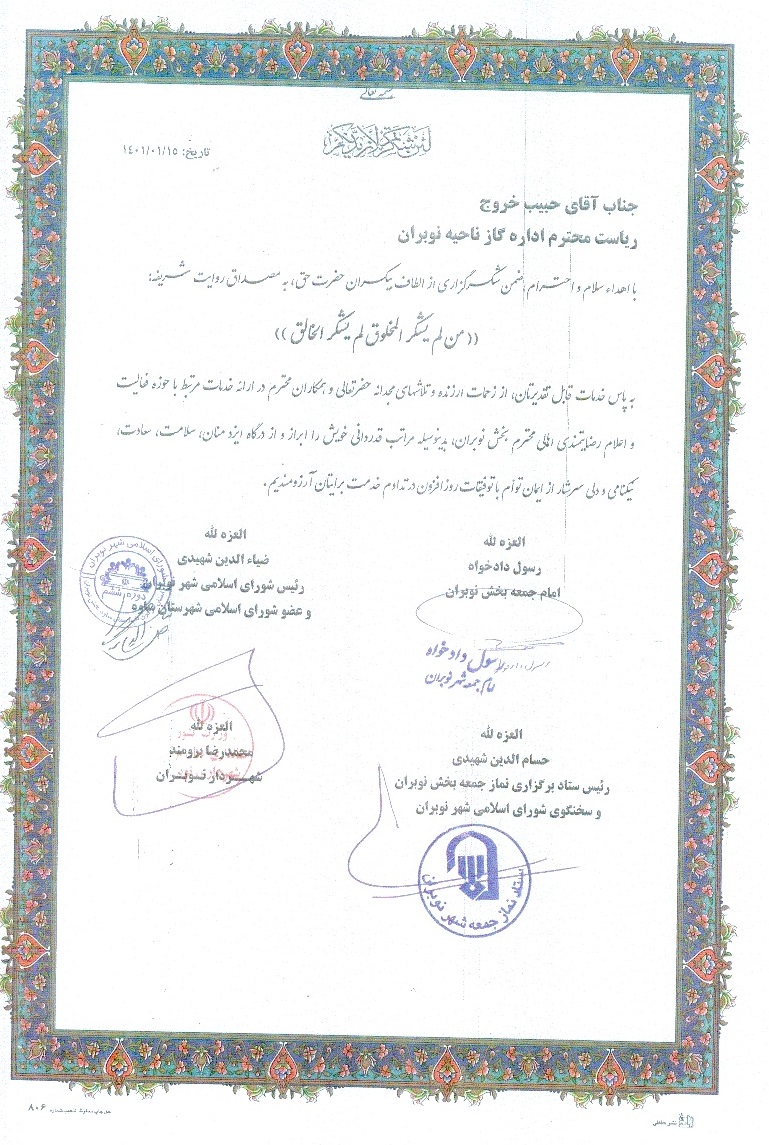 بسمه تعالی
لئن شکرتم لازیدنکم
تاریخ: ۱۴۰۱/۰۱/۱۵
جناب آقای حبیب خروج
ریاست محترم اداره گاز ناحیه نوبران
با اهداء سلام و احترام ضمن شکرگزاری از الطاف بیکران حضرت حق، به مصداق روایت شریفه:
((من لم یشکر المخلوق لم یشکر الخالق))
به پاس خدمات قابل تقدیرتان، از زحمات ارزنده و تلاشهای مجدانه حضرتعالی و همکاران محترم در ارائه خدمات مرتبط با حوزه فعالیت
و اعلام رضایتمندی اهالی محترم بخش نوبران، بدینوسیله مراتب قدردانی خویش را ابراز و از درگاه ایزد منان، سلامت، سعادت،
نیکنامی و دلی سرشار از ایمان توأم با توفیقات روزافزون در تداوم خدمت برایتان آرزومندیم.
العزه لله
رسول دادخواه
امام جمعه بخش نوبران
رسول دادخواه
امام جمعه شهر نوبران
العزه لله
ضیاء الدین شهیدی
رئیس شورای اسلامی شهر نوبران
و عضو شورای اسلامی شهرستان ساوه
شورای اسلامی شهر نوبران
دوره ششم
العزه لله
حسام الدین شهیدی
رئیس ستاد برگزاری نماز جمعه بخش نوبران
و سخنگوی شورای اسلامی شهر نوبران
ستاد نماز جمعه شهر نوبران
العزه لله
محمدرضا برومند
شهردار نوبران
وزارت کشور
۸۰۶
نشر حافظی